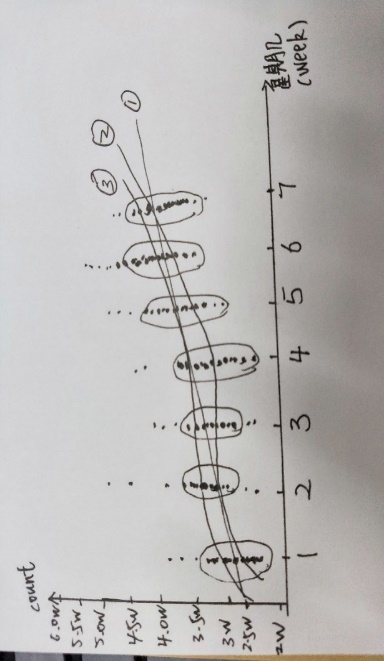 count
6.0W
5.5W
5.0W
4.5W
4.0W
3.5W
3W
2.5W
2W
1 2 3 4 5 6 7
星期几
(week)
①
②
③